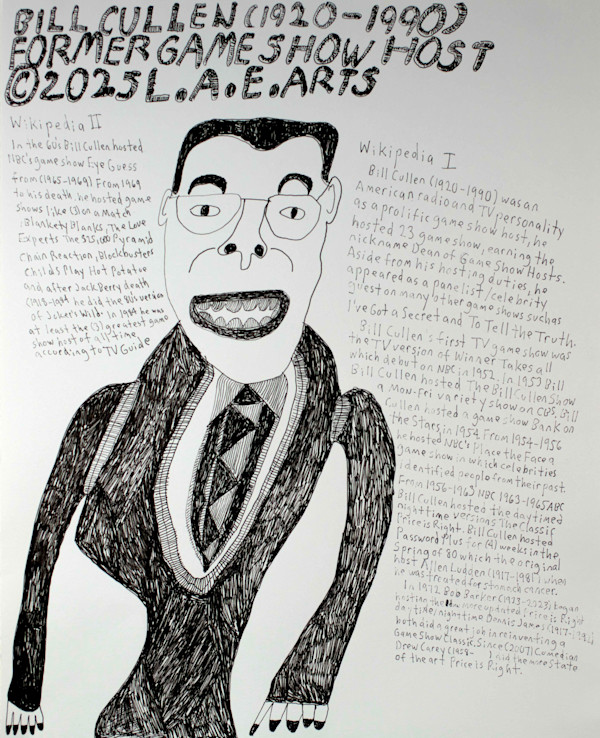 BILL CULLEN (1920-1990)
FORMER GAME SHOW HOST
©2025 L.A.E. ARTS
Wikipedia II
In the 60's Bill Cullen hosted
NBC's game show Eye Guess
from (1965-1969) From 1969
to his death he hosted game
shows like (3) on a Match
Blankety Blanks, The Love
Experts The $25,000 Pyramid
Chain Reaction, Blockbusters
Childs Play Hot Potatoe
and after Jack Barry death
he did the 80's version
of Joker's Wild. In 1984 he was
at least the greatest game
show host of all time
according to TV Guide
Wikipedia I
Bill Cullen (1920-1990) was an
American radio and TV personality
as a prolific game show host, he
hosted 23 game show, earning the
nickname Dean of Game Show Hosts.
Aside from his hosting duties, he
appeared as a panelist/celebrity
guest on many other game shows such as
I've Got a Secret and To Tell the Truth.
Bill Cullen's first TV game show was
the TV version of Winner Takes all
which debut on NBC in 1952. In 1953 Bill
Bill Cullen hosted The Bill Cullen Show
a Mon-Fri variety show on CBS. Bill
Cullen hosted a game show Bank on
the Stars in 1954. From 1954-1956
he hosted NBC's Place the Face a
game show in which celebrities
identified people from their past.
From 1956-1963 NBC 1963-1965 ABC
Bill Cullen hosted the daytime &
nighttime versions The Classic
Price is Right. Bill Cullen hosted
Password Plus for (4) weeks in the
Spring of 80 which the original
host Allen Ludden (1917-1981) when
he was treated for stomach cancer.
In 1972 Bob Barker (1923-2023) began
hosting the more updated Price is Right
daytime/nighttime Dennis James (1917-
both did a great job in reinventing a
Game Show Classic. Since (2007) Comedian
Drew Carey (1958- ) did the more state
of the art Price is Right.